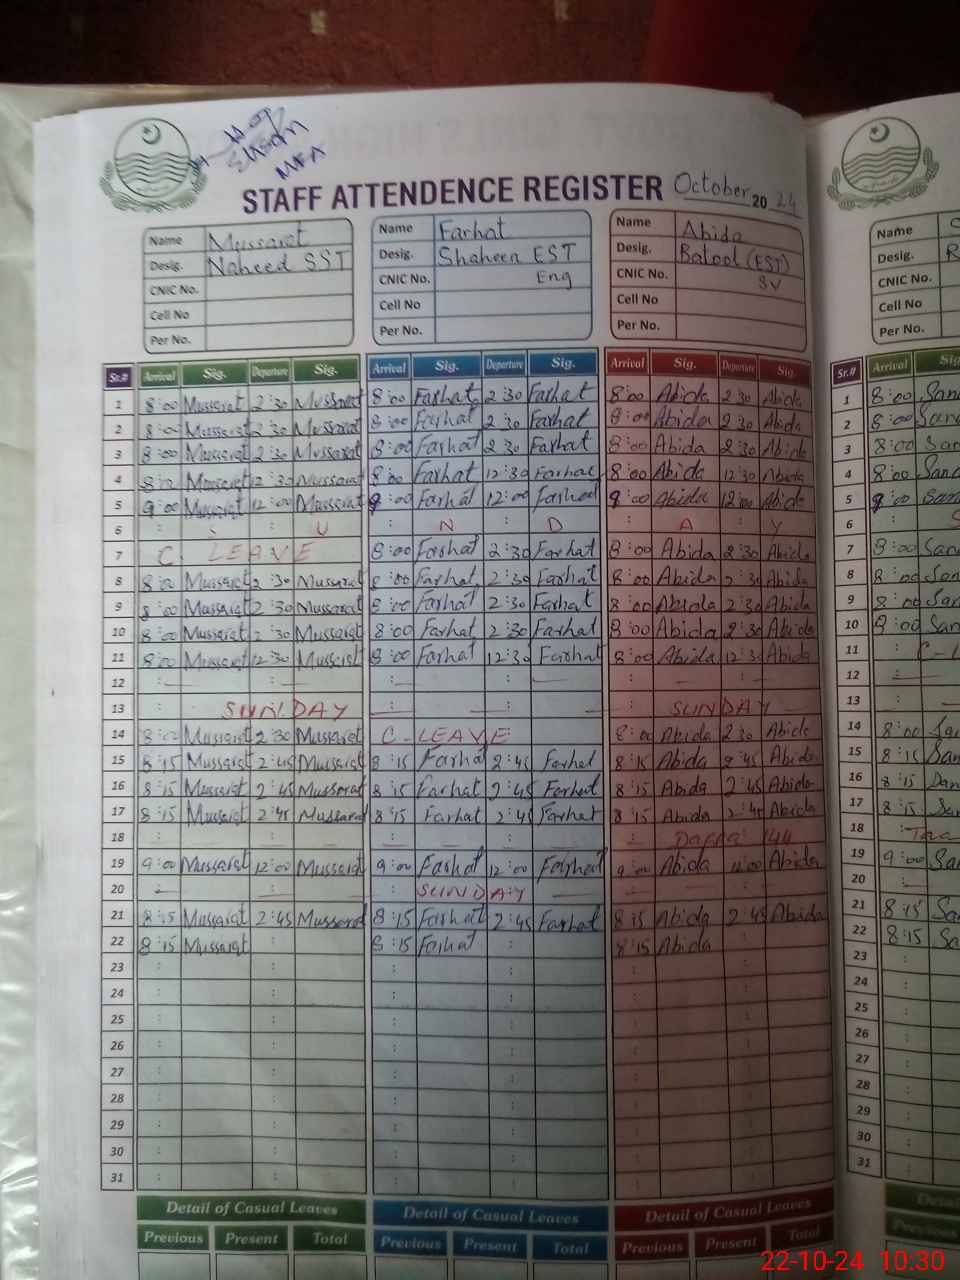 Ehsan
MEA
STAFF ATTENDENCE REGISTER October 20 24
Name Mussarat Name Farhat Name Abida Name
Desig. Naheed SST Desig. Shaheen EST Desig. Batool (EST) Desig.
CNIC No. CNIC No. Eng CNIC No. SV CNIC No.
Cell No Cell No Cell No Cell No
Per No. Per No. Per No. Per No.
Sr.# Arrival Sig. Departure Sig. Arrival Sig. Departure Sig. Arrival Sig. Departure Sig. Sr.# Arrival Sig
1 8:00 Mussarat 2:30 Mussarat 8:00 Farhat 2:30 Farhat 8:00 Abida 2:30 Abida 1 8:00
2 8:00 Mussarat 2:30 Mussarat 8:00 Farhat 2:30 Farhat 8:00 Abida 2:30 Abida 2 8:00
3 8:00 Mussarat 2:30 Mussarat 8:00 Farhat 2:30 Farhat 8:00 Abida 2:30 Abida 3 8:00
4 8:00 Mussarat 12:30 Mussarat 8:00 Farhat 12:30 Farhat 8:00 Abida 12:30 Abida 4 8:00
5 9:00 Mussarat 12:00 Mussarat 9:00 Farhat 12:00 Farhat 9:00 Abida 12:00 Abida 5 9:00
6 S U N D A Y 6
7 C LEAVE 8:00 Farhat 2:30 Farhat 8:00 Abida 2:30 Abida 7 8:00
8 8:00 Mussarat 2:30 Mussarat 8:00 Farhat 2:30 Farhat 8:00 Abida 2:30 Abida 8 8:00
9 8:00 Mussarat 2:30 Mussarat 8:00 Farhat 2:30 Farhat 8:00 Abida 2:30 Abida 9 8:00
10 8:00 Mussarat 2:30 Mussarat 8:00 Farhat 2:30 Farhat 8:00 Abida 2:30 Abida 10 8:00
11 8:00 Mussarat 12:30 Mussarat 8:00 Farhat 12:30 Farhat 8:00 Abida 12:30 Abida 11
12 12
13 SUNDAY SUNDAY 13
14 8:00 Mussarat 2:30 Mussarat C-LEAVE 8:00 Abida 2:30 Abida 14 8:00
15 8:15 Mussarat 2:45 Mussarat 8:15 Farhat 2:45 Farhat 8:15 Abida 2:45 Abida 15 8:15
16 8:15 Mussarat 2:45 Mussarat 8:15 Farhat 2:45 Farhat 8:15 Abida 2:45 Abida 16 8:15
17 8:15 Mussarat 2:45 Mussarat 8:15 Farhat 2:45 Farhat 8:15 Abida 2:45 Abida 17 8:15
18 144 18
19 9:00 Mussarat 12:00 Mussarat 9:00 Farhat 12:00 Farhat 9:00 Abida 12:00 Abida 19 9:00
20 SUNDAY 20
21 8:15 Mussarat 2:45 Mussarat 8:15 Farhat 2:45 Farhat 8:15 Abida 2:45 Abida 21 8:15
22 8:15 Mussarat 8:15 Farhat 8:15 Abida 22 8:15
23 23
24 24
25 25
26 26
27 27
28 28
29 29
30 30
31 31
Detail of Casual Leaves Detail of Casual Leaves Detail of Casual Leaves
Previous Present Total Previous Present Total Previous Present Total
22-10-24 10:30